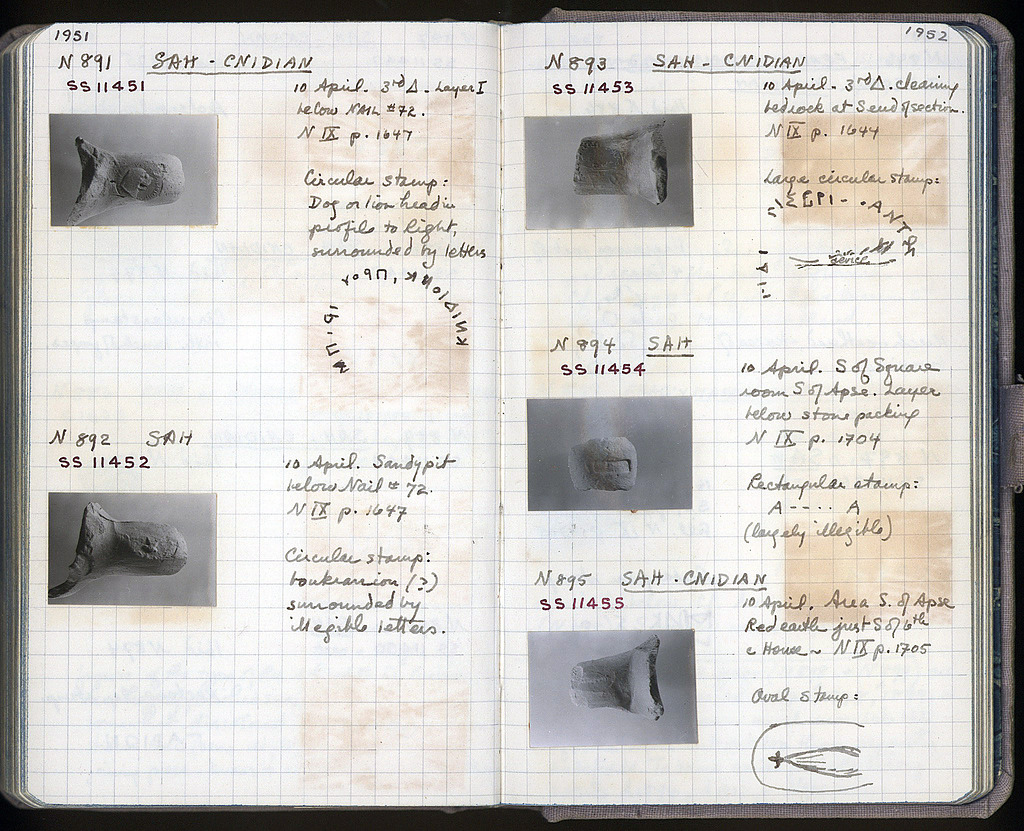 1951
N 891 SAH - CNIDIAN
SS 11451
10 April. 3rd Δ. Layer I
below Nail #72.
N IX p. 1647
Circular stamp:
Dog or lion head in
profile to right,
surrounded by letters
N 892 SAH
SS 11452
10 April. Sandy pit
below Nail #72.
N IX p. 1647
Circular stamp:
boukranion (?)
surrounded by
illegible letters.
1952
N 893 SAH - CNIDIAN
SS 11453
10 April. 3rd Δ. cleaning
bedrock at S end of section.
N IX p. 1644
Large circular stamp:
ΕΠΙ - - . ΑΝΤ
device
N 894 SAH
SS 11454
10 April. S of Square
room S of Apse. Layer
below stone packing
N IX p. 1704
Rectangular stamp:
A - - - - A
(largely illegible)
N 895 SAH - CNIDIAN
SS 11455
10 April. Area S. of Apse
Red earth just S of 6th
c House ~ N IX p. 1705
Oval stamp: